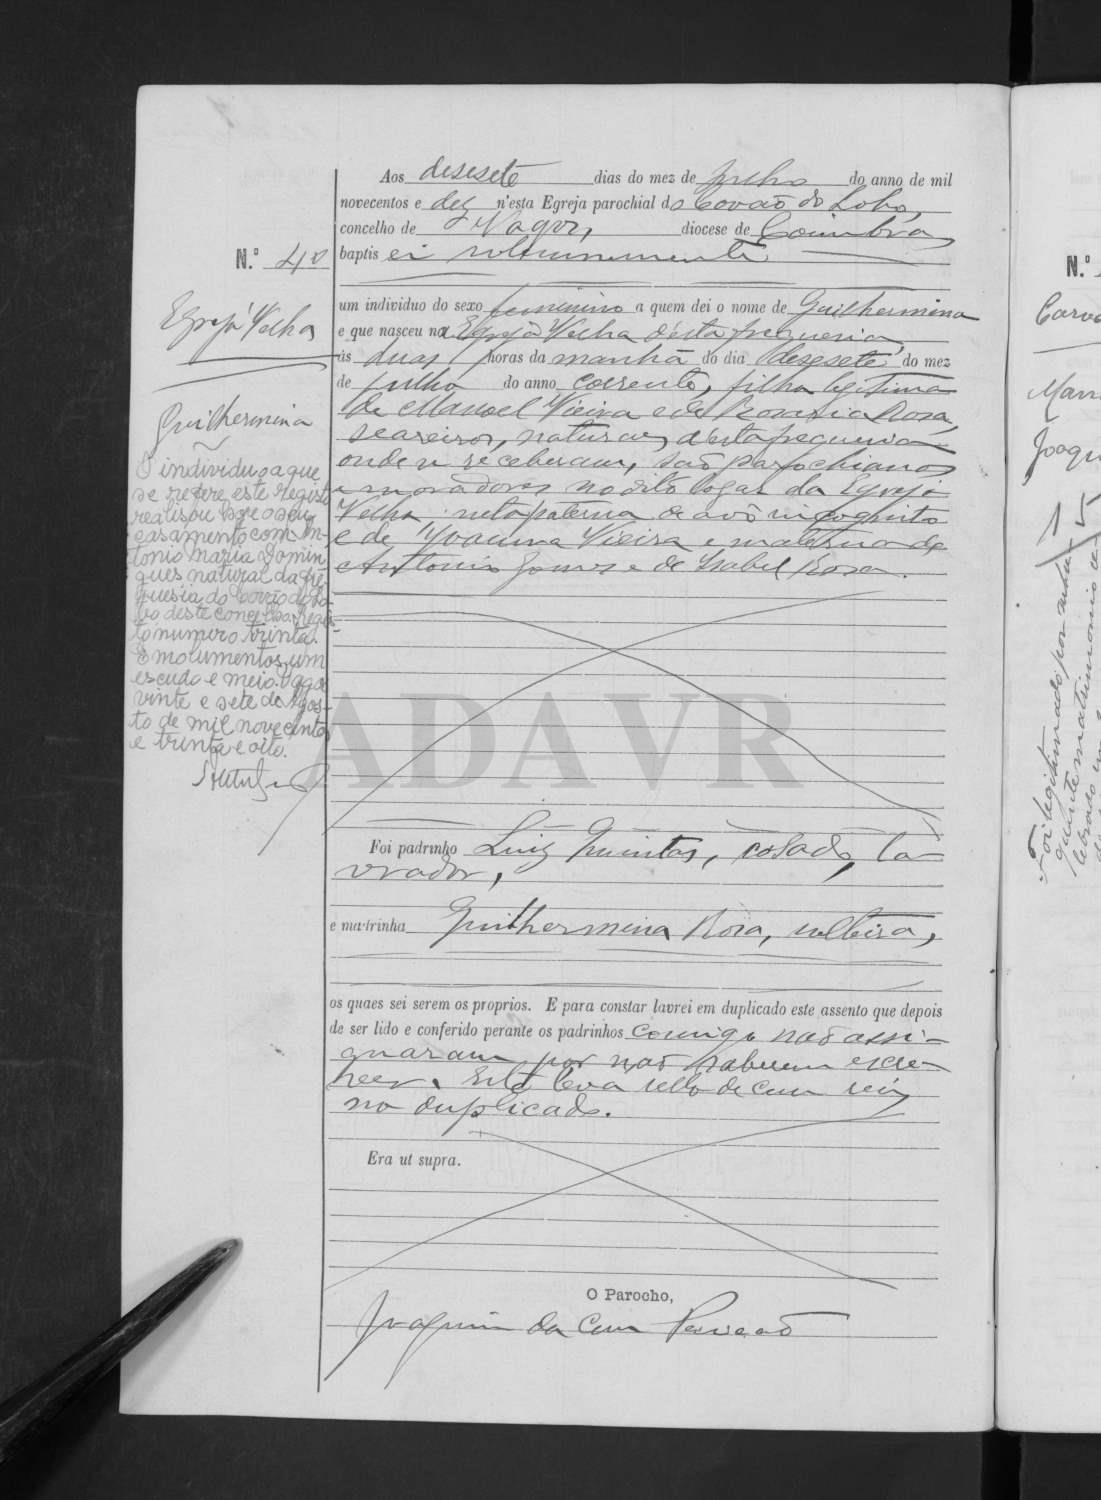 Aos desesete dias do mez de julho do anno de mil
novecentos e dez n'esta Egreja parochial do Covão do Lobo,
concelho de Vagos, diocese de Coimbra
N.º 40
baptisei solemnemente
um individuo do sexo feminino a quem dei o nome de Guilhermina
e que nasceu na Egreja Velha d'esta freguesia
ás duas horas da manhã do dia desesete do mez
de julho do anno corrente, filha legitima
de Manoel Vieira e de Rosaria Rosa,
seareiros, naturaes d'esta freguesia
onde se receberam, são parochianos
e moradores no dito logar da Egreja
Velha: neta paterna de avô incognito
e de Joanna Vieira e materna de
Antonio Gomes e de Isabel Rosa.
Egreja Velha
Guilhermina
O individuo a que
se refere este registo
realisou hoje o seu
casamento com An-
tonio Maria Domin-
gues natural da fre-
guesia do Covão do Lo-
bo deste concelho. Regis-
to numero trinta.
Emolumentos, um
escudo e meio. Vagos
vinte e sete de Agos-
to de mil novecentos
e trinta e oito.
Foi padrinho Luiz Quintas, casado, la-
vrador,
e madrinha Guilhermina Rosa, solteira,
os quaes sei serem os proprios. E para constar lavrei em duplicado este assento que depois
de ser lido e conferido perante os padrinhos comigo não assi-
gnaram por não saberem escre-
ver. Este leva sello de cem reis
no duplicado.
Era ut supra.
O Parocho,
Joaquim da
ADAVR
N.º
Foi legitimado por
matrimonio ce-
lebrado